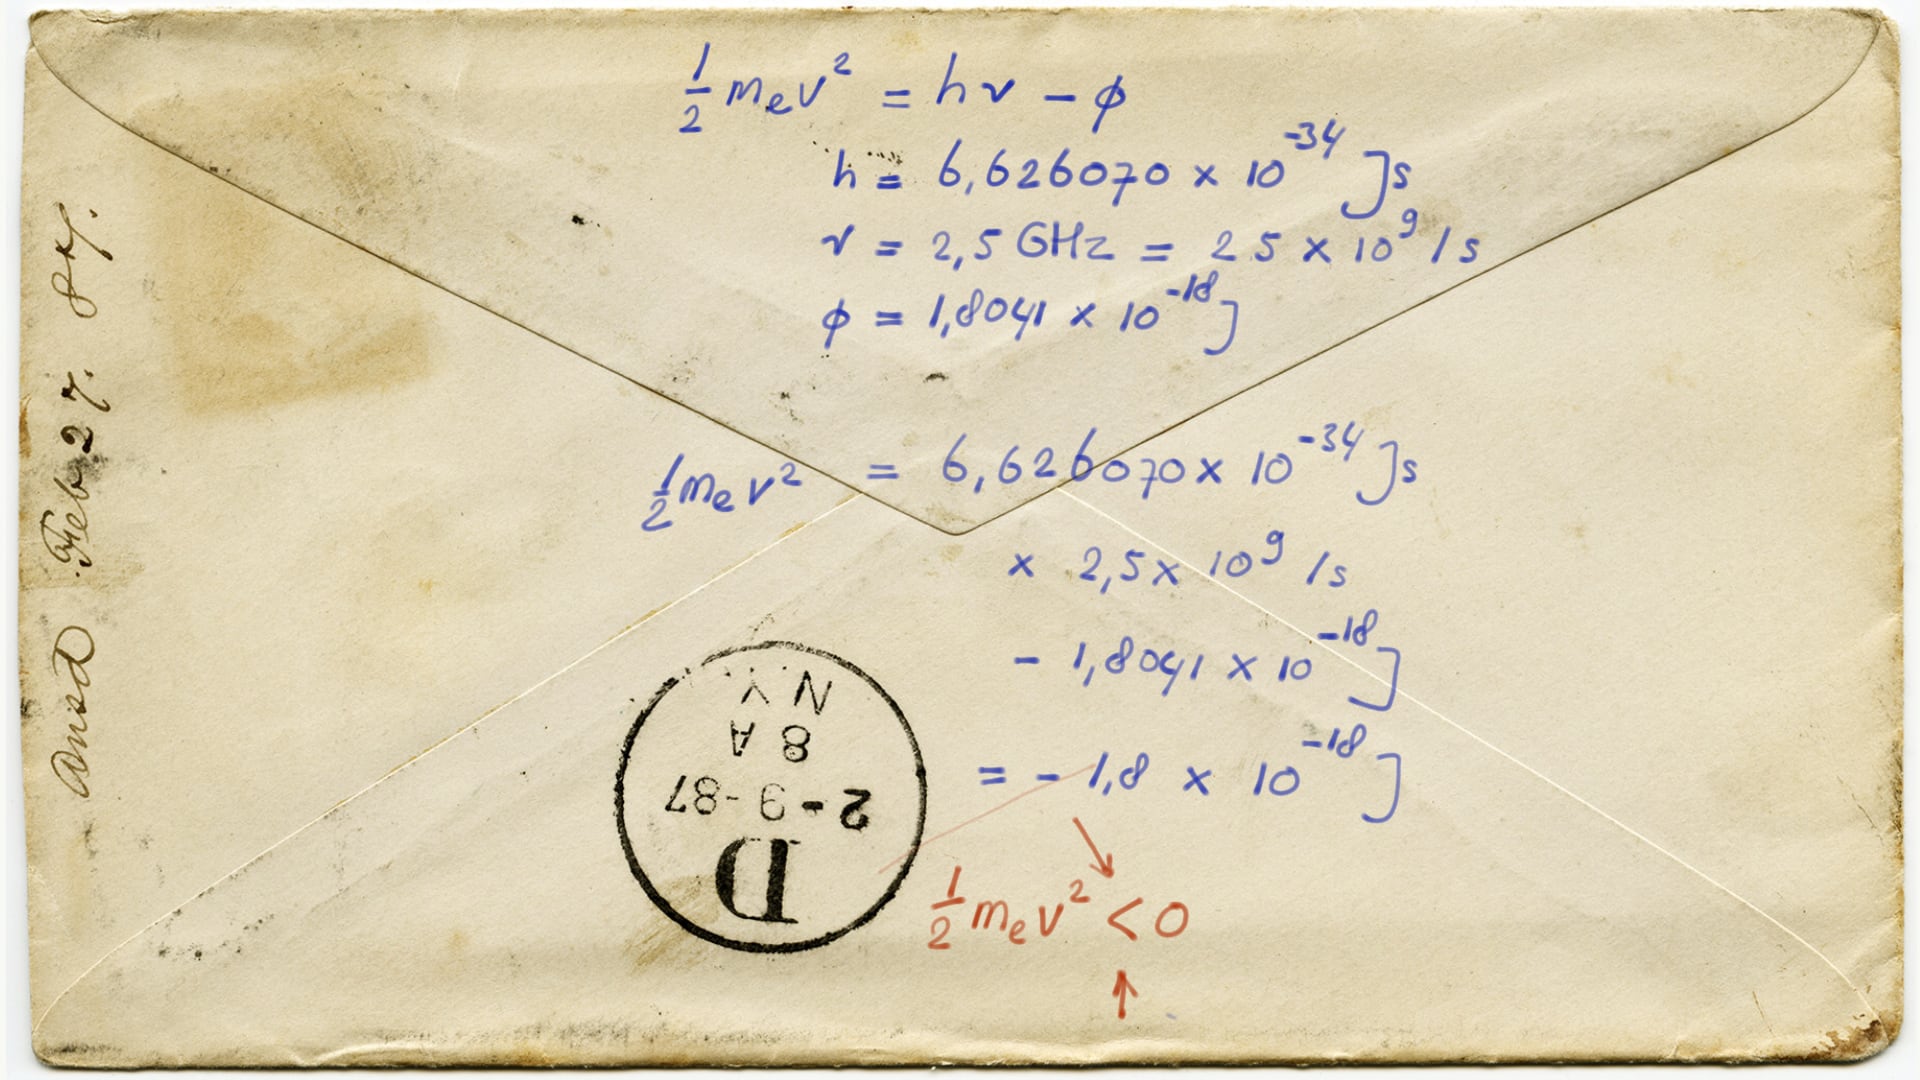 ½mₑv² = hν − ϕ
h = 6,626070 × 10⁻³⁴ Js
ν = 2,5 GHz = 2 5 × 10⁹ /s
ϕ = 1,8041 × 10⁻¹⁸ J
½mₑv² = 6,626070 × 10⁻³⁴ Js
× 2,5 × 10⁹ /s
− 1,8041 × 10⁻¹⁸ J
= − 1,8 × 10⁻¹⁸ J
½mₑv² < 0
Feb 27. 87.
N.Y.
8 A
2-9-87
D